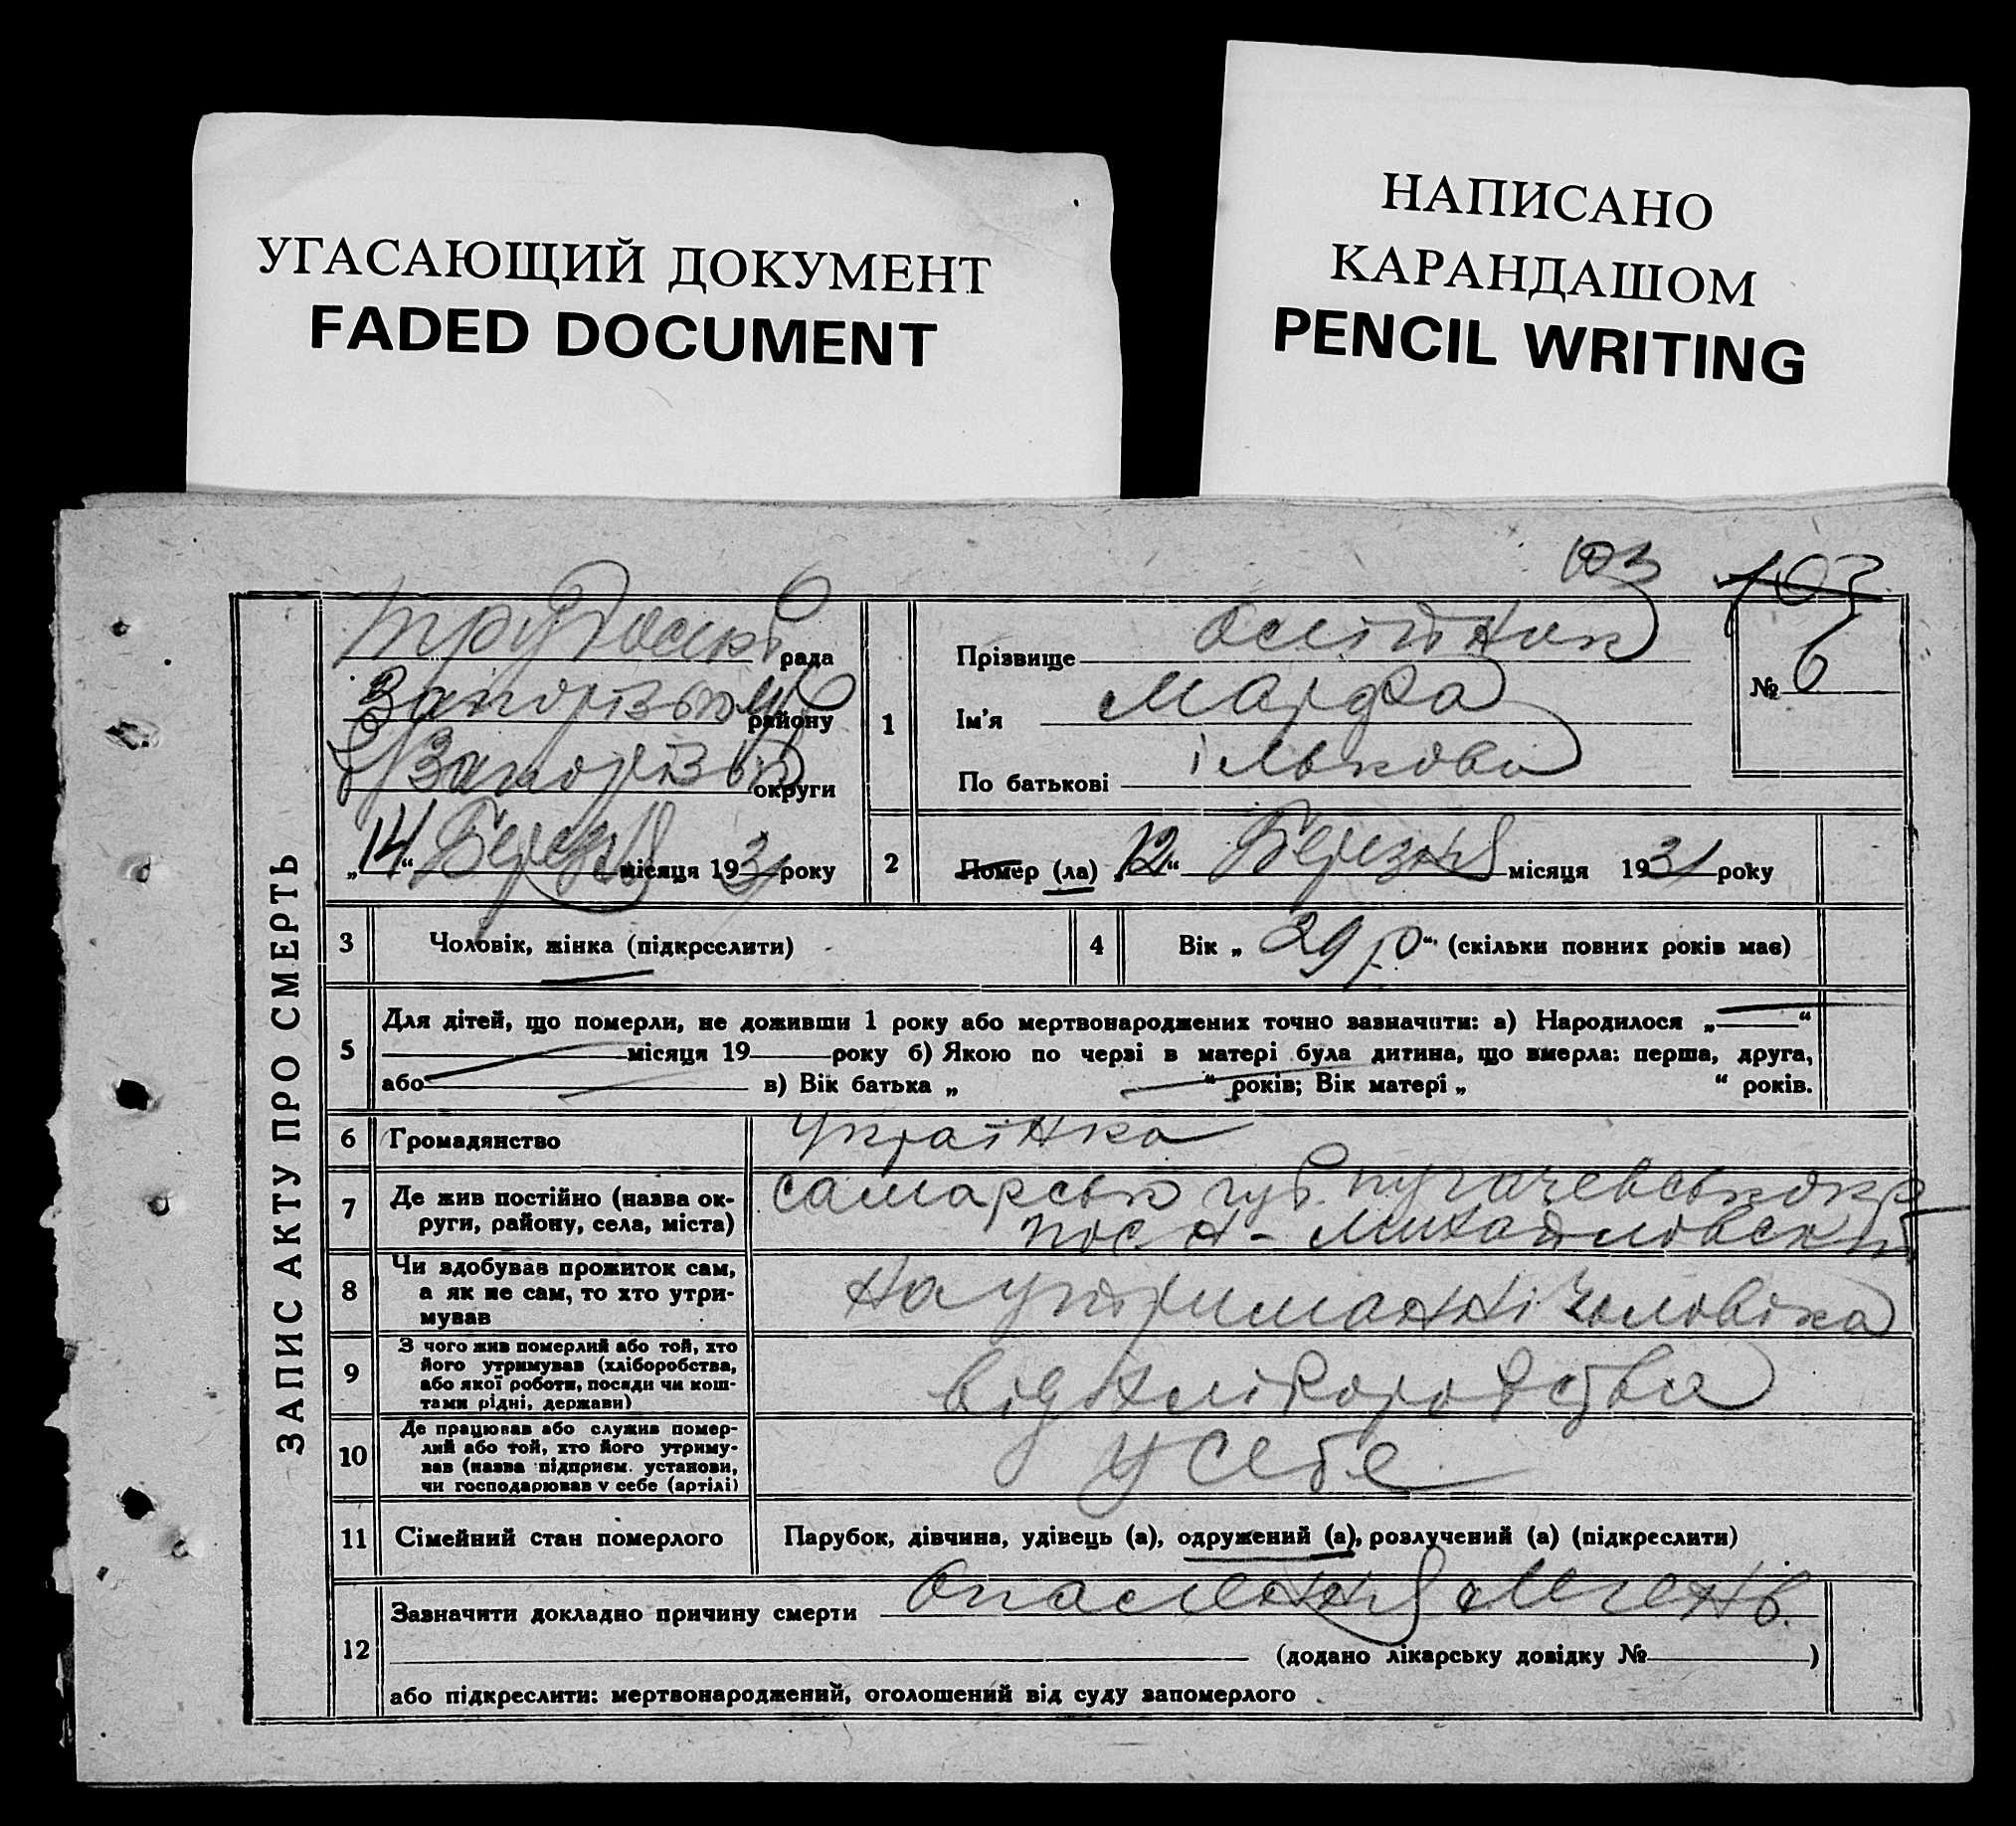 УГАСАЮЩИЙ ДОКУМЕНТ
FADED DOCUMENT
НАПИСАНО
КАРАНДАШОМ
PENCIL WRITING
103 103
ЗАПИС АКТУ ПРО СМЕРТЬ
рада
Запорізького району
Запорізьк округи
„14“ Березня місяця 1931 року
1
Прізвище Олійник
Ім’я Марфа
По батькові ількова
№ 6
2 Помер (ла) „12“ Березня місяця 1931 року
3 Чоловік, жінка (підкреслити)
4 Вік „29 р“ (скільки повних років має)
5
Для дітей, що померли, не доживши 1 року або мертвонароджених точно зазначити: а) Народилося „ “
місяця 19 року б) Якою по черзі в матері була дитина, що вмерла: перша, друга,
або в) Вік батька „ “ років; Вік матері „ “ років.
6 Громадянство Українка
7 Де жив постійно (назва ок-
руги, району, села, міста)
Самарськ губ. пугачевськ окр
Михайловск
8 Чи здобував прожиток сам,
а як не сам, то хто утри-
мував
На утриманні Чоловіка
9 З чого жив померлий або той, хто
його утримував (хліборобства,
або якої роботи, посади чи кош-
тами рідні, держави)
від хліборобства
10 Де працював або служив помер-
лий або той, хто його утриму-
вав (назва підприєм. установи,
чи господарював у себе (артілі)
У себе
11 Сімейний стан померлого Парубок, дівчина, удівець (а), одружений (а), розлучений (а) (підкреслити)
12 Зазначити докладно причину смерти Опалення легень.
(додано лікарську довідку № )
або підкреслити: мертвонароджений, оголошений від суду запомерлого